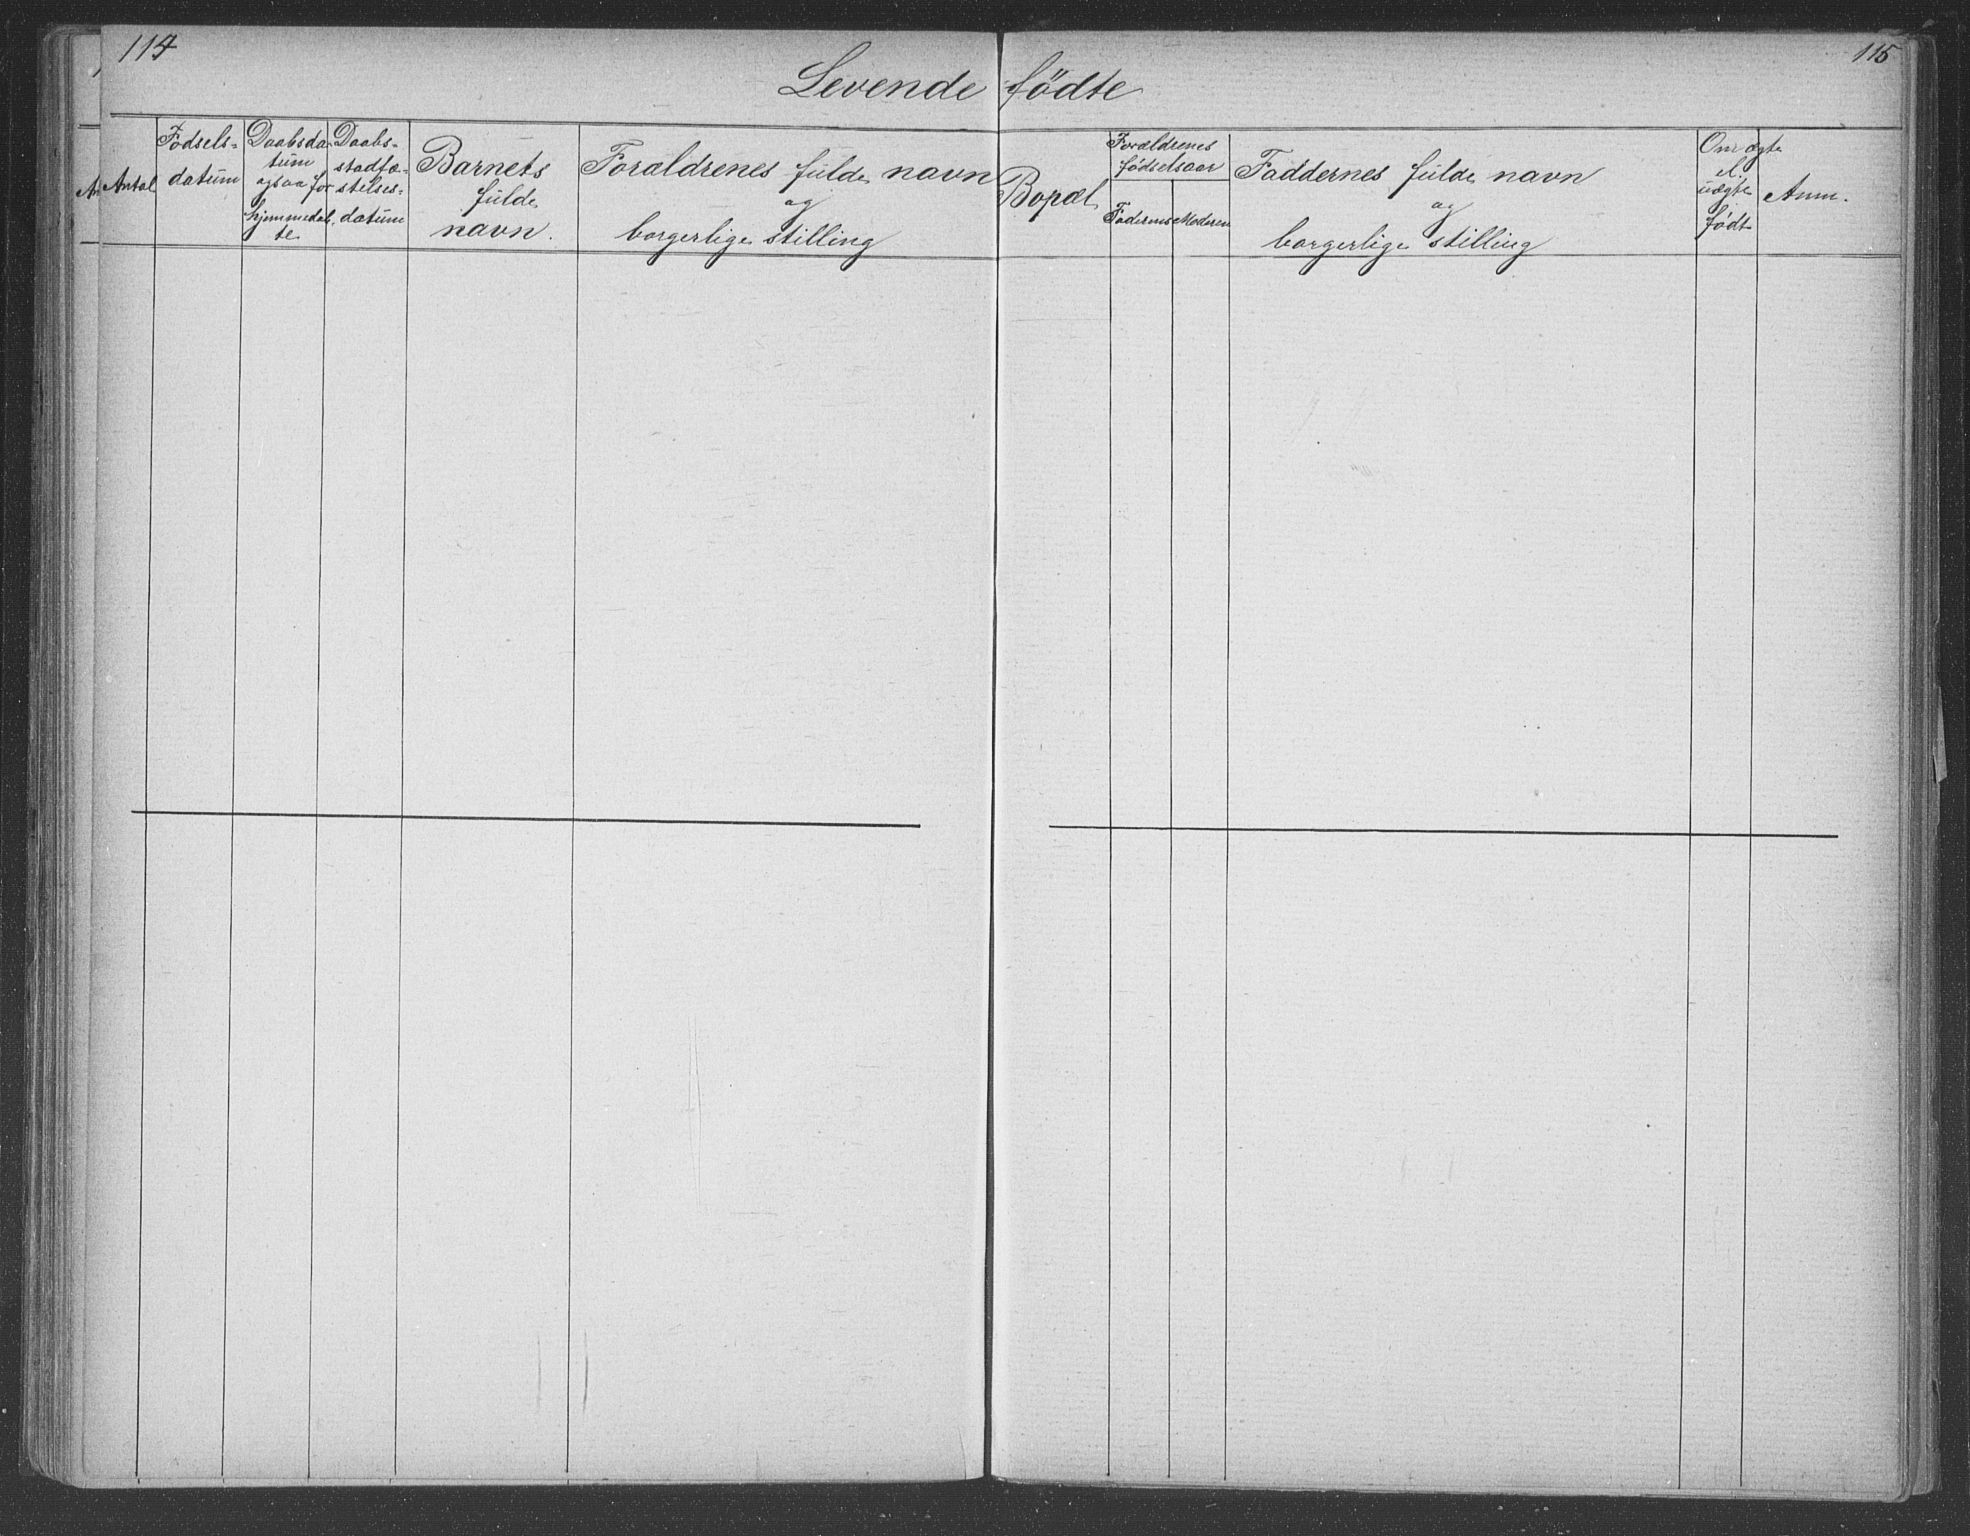 114
115
Levende fødte
Antal
Fødsels=
datum
Daabsda=
tum
ogsaa for
hjemmedøb,
te
Daabs=
stadfæ=
stelses=
datum
Barnets
fulde
navn.
Forældrenes fulde navn
og
borgerlige stilling
Bopæl
Forældrenes
fødselsaar
Faderens
Moderen
Faddernes fulde navn
og
borgerlige stilling
Om ægte
el.
uægte
født
Anm.